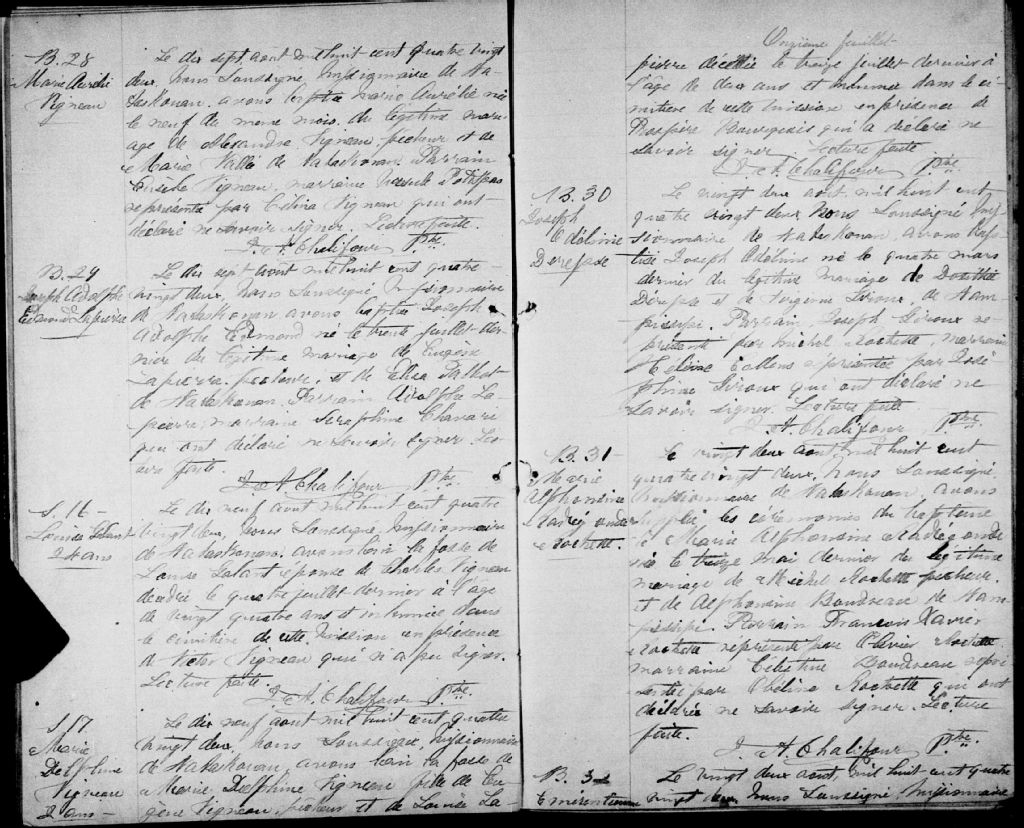 B. 28
Marie Aurélie
Vigneau
Le dix sept aout mil huit cent quatre vingt
deux, nous soussigné, missionnaire de Na-
taskouan, avons baptisé Marie Aurélie née
le neuf du meme mois, du légitime mari-
age de Alexandre Vigneau pecheur et de
Marie Vallée de Nataskouan. Parrain
Vigneau, marraine
représentée par Célina Vigneau qui ont
déclaré ne savoir signer. Lecture faite.
J. A. Chalifour Ptre.
B. 29
Joseph Adolphe
Edmond Lapierre
Le dix sept aout mil huit cent quatre
vingt deux, nous soussigné missionnaire
de Nataskouan avons baptisé Joseph
Adolphe Edmond né le trente juillet der-
nier du légitime mariage de Eugène
Lapierre, pecheur, et de Eliza Talbot
de Nataskouan. Parrain Adolphe La-
pierre, marraine Seraphine Chavarie
qui ont déclaré ne savoir signer Lec-
ture faite.
J. A. Chalifour Ptre.
S. 16
Louise Galant
24 ans
Le dix neuf aout mil huit cent quatre
vingt deux, nous soussigné, missionnaire
de Nataskouan, avons béni la fosse de
Louise Galant épouse de Charles Vigneau
décédée le quatre juillet dernier à l'age
de vingt quatre ans et inhumée dans
le cimetière de cette mission en présence
de Victor Vigneau qui n'a pu signer.
Lecture faite.
J. A. Chalifour Ptre.
S. 17
Marie
Delphine
Vigneau
2 ans
Le dix neuf aout mil huit cent quatre
vingt deux, nous soussigné, missionnaire
de Nataskouan, avons béni la fosse de
Marie Delphine Vigneau fille de Eu-
gène Vigneau, pecheur et de Louise La-
Onzième feuillet
pierre décédée le treize juillet dernier à
l'age de deux ans et inhumée dans le ci-
metière de cette mission en présence de
Prospère Bourgeois qui a déclaré ne
savoir signer Lecture faite.
J. A. Chalifour Ptre.
B. 30
Joseph
Edelime
Derepse
Le vingt deux aout mil huit cent
quatre vingt deux Nous soussigné mis-
sionnaire de Nataskouan, avons bap-
tisé Joseph né le quatre mars
dernier du légitime mariage de Dosithée
et de Virginie Giroux, de Nam-
pissipi. Parrain, Joseph Giroux re-
présenté par Michel Rochette, marraine
Célina représentée par José-
phine Giroux qui ont déclaré ne
savoir signer. Lecture faite
J. A. Chalifour, Ptre.
B. 31
Marie
Alphonsine
Radégonde
Rochette.
Le vingt deux aout, mil huit cent
quatre vingt deux, nous soussigné
missionnaire de Nataskouan, avons
suppléé les cérémonies du baptême
à Marie Alphonsine Radégonde
née le treize mai dernier du légitime
mariage de Michel Rochette pecheur.
et de Alphonsine Boudreau de Nam-
pissipi. Parrain Francois Xavier
Rochette représenté par Olivier Rochette
marraine Célestine Boudreau repré-
sentée par Obéline Rochette qui ont
déclaré ne savoir signer. Lecture
faite.
J. A. Chalifour Ptre.
B. 32
Le vingt deux aout, mil huit cent quatre
vingt deux nous soussigné, missionnaire